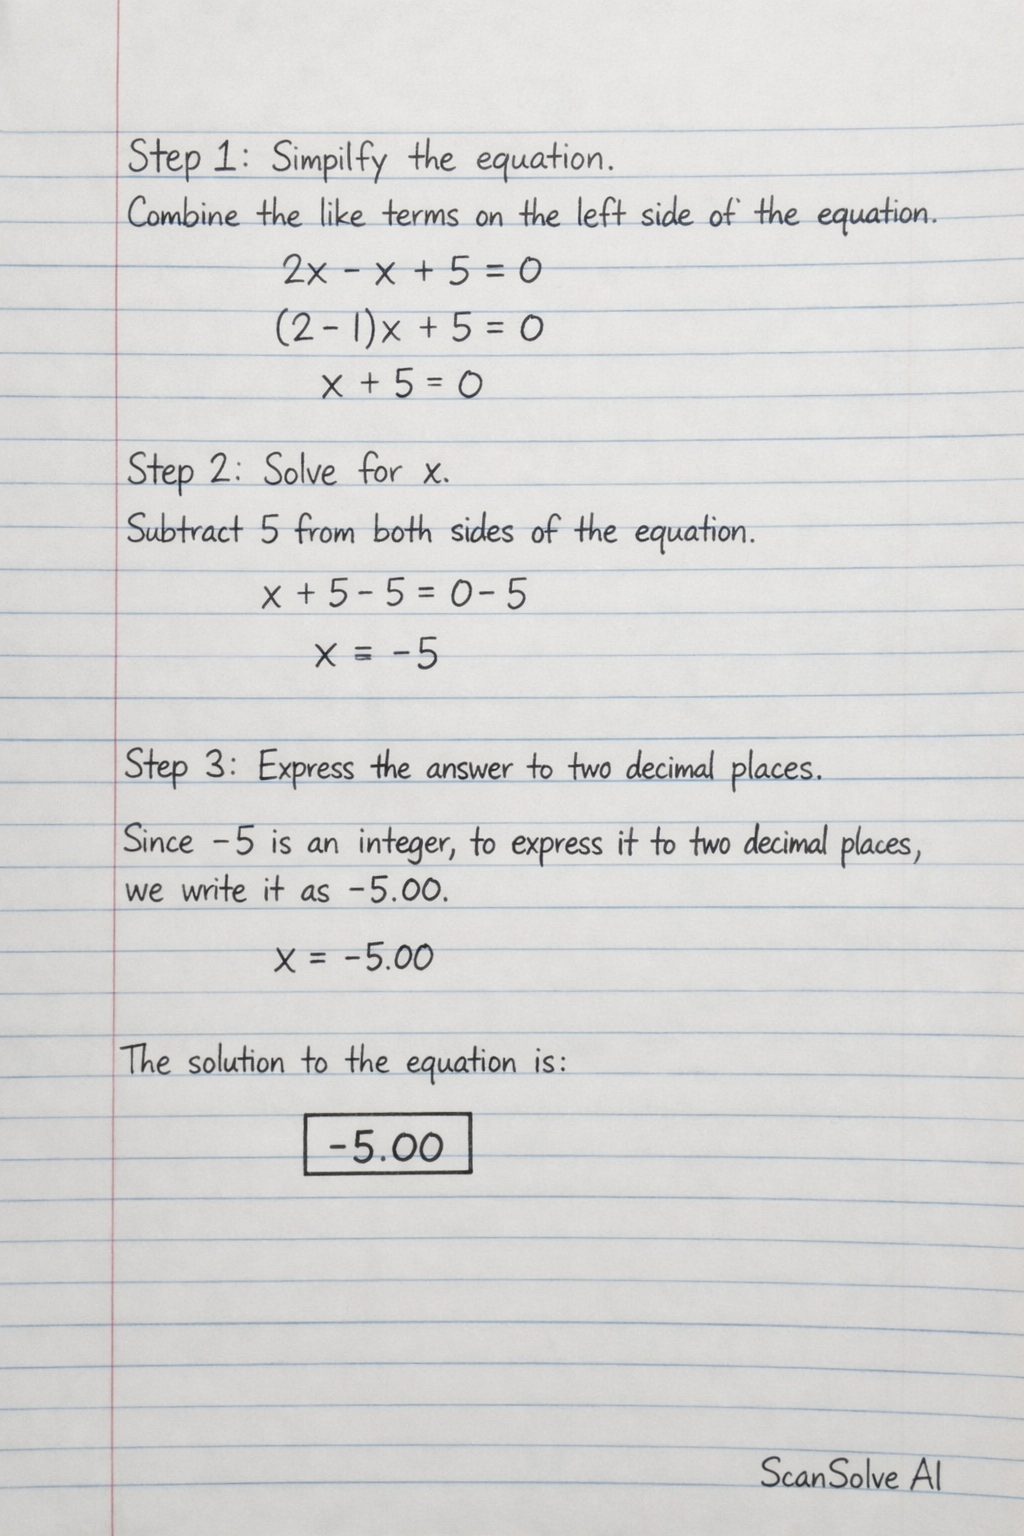 Step 1: Simpilfy the equation.
Combine the like terms on the left side of the equation.
2x - x + 5 = 0
(2 - 1)x + 5 = 0
x + 5 = 0
Step 2: Solve for x.
Subtract 5 from both sides of the equation.
x + 5 - 5 = 0 - 5
x = -5
Step 3: Express the answer to two decimal places.
Since -5 is an integer, to express it to two decimal places,
we write it as -5.00.
x = -5.00
The solution to the equation is:
-5.00
ScanSolve AI